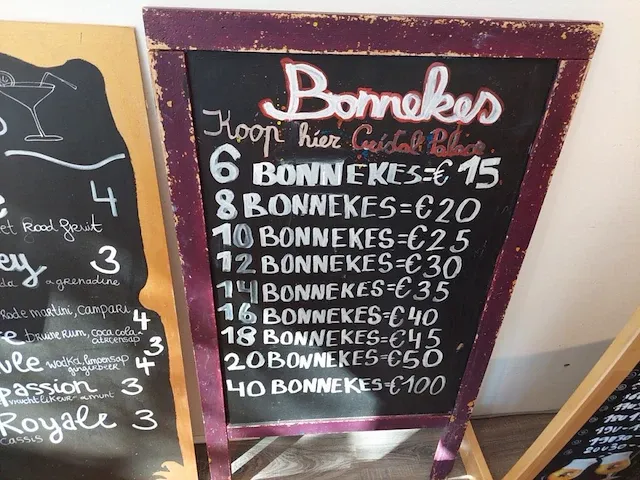 Bonnekes
Koop hier
6 BONNEKES=€15
8 BONNEKES=€20
10 BONNEKES=€25
12 BONNEKES=€30
14 BONNEKES=€35
16 BONNEKES=€40
18 BONNEKES=€45
20 BONNEKES=€50
40 BONNEKES=€100
4
et Rood fruit
ey 3
da a grenadine
Rode martini, campari 4
bruine rum, coca cola 3
wodka, limoensap 4
gingerbeer
passion 3
Royale 3
cassis